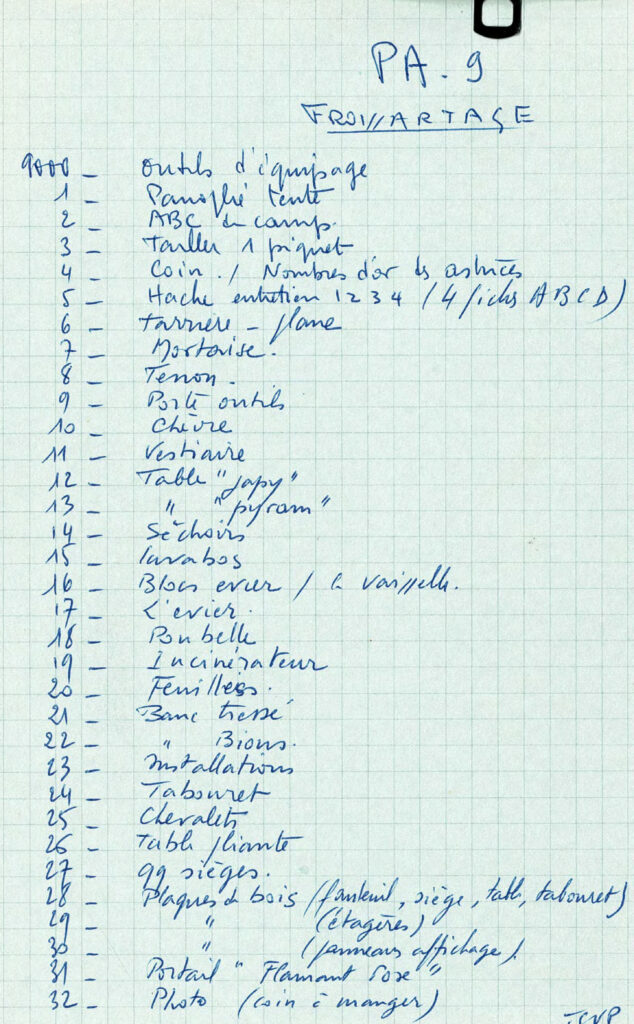 PA. 9
FROISSARTAGE
9000 - outils d'équipage
1 - Panoplie tente
2 - ABC du camp.
3 - Tailler 1 piquet
4 - Coin. / Nombres d'or des astuces
5 - Hache entretien 1 2 3 4 / 4 fiches A B C D)
6 - tarrière - plane
7 - Mortaise.
8 - Tenon.
9 - Porte outils
10 - Chèvre
11 - Vestiaire
12 - Table "japy"
13 - " "pyram"
14 - Séchoirs
15 - lavabos
16 - Blocs evier / la vaisselle.
17 - L'evier.
18 - Poubelle
19 - Incinérateur
20 - Feuillées.
21 - Banc tressé
22 - " Bions.
23 - Installations
24 - Tabouret
25 - Chevalets
26 - table pliante
27 - qq sièges.
28 - Plaques de bois (fauteuil, siège, table, tabouret)
29 - " (étagères)
30 - " (panneaux affichage)
31 - Portail "Flamant Rose"
32 - Photo (coin à manger)
TSVP